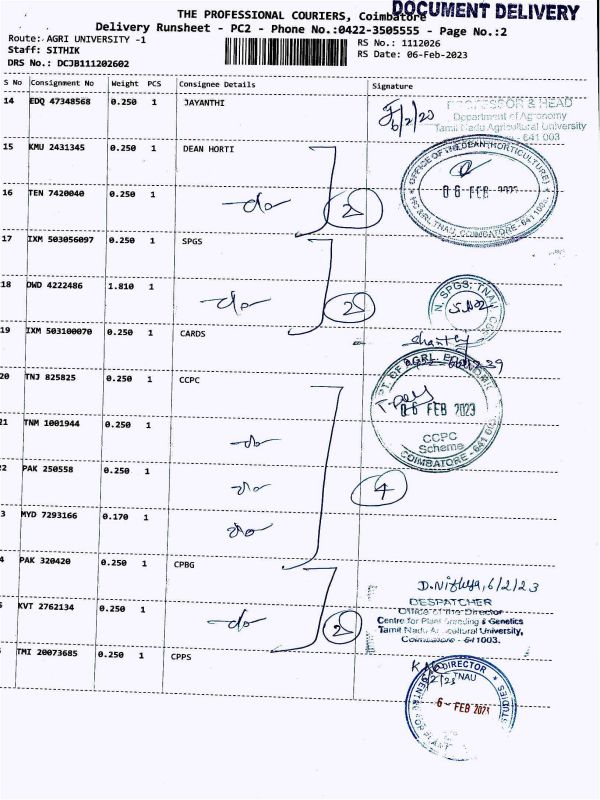 THE PROFESSIONAL COURIERS, Coimbatore
DOCUMENT DELIVERY
Delivery Runsheet - PC2 - Phone No.:0422-3505555 - Page No.:2
Route: AGRI UNIVERSITY -1
RS No.: 1112026
Staff: SITHIK
RS Date: 06-Feb-2023
DRS No.: DCJB111202602
S No Consignment No Weight PCS Consignee Details Signature
14 EDQ 47348568 0.250 1 JAYANTHI
6/2/23
PROFESSOR & HEAD
Department of Agronomy
Tamil Nadu Agricultural University
641 003
15 KMU 2431345 0.250 1 DEAN HORTI
OFFICE OF THE DEAN (HORTICULTURE)
06 FEB 2023
HC & RI, TNAU, COIMBATORE - 641 003
16 TEN 7420040 0.250 1
-do-
2
17 IXM 503056097 0.250 1 SPGS
18 DWD 4222486 1.810 1
-do-
2
SPGS, TNAU
19 IXM 503100070 0.250 1 CARDS
20 TNJ 825825 0.250 1 CCPC
DPT. OF AGRL. ECONOMIC
06 FEB 2023
CCPC
Scheme
COIMBATORE - 641 003
21 TNM 1001944 0.250 1
-do-
2 PAK 250558 0.250 1
-do-
4
3 MYD 7293166 0.170 1
-do-
4 PAK 320420 0.250 1 CPBG
D. Nithya, 6/2/23
DESPATCHER
Office of the Director
Centre for Plant Breeding & Genetics
Tamil Nadu Agricultural University,
Coimbatore - 641003.
KVT 2762134 0.250 1
-do-
2
TMI 20073685 0.250 1 CPPS
DIRECTOR
TNAU
6/2/23
6- FEB 2023